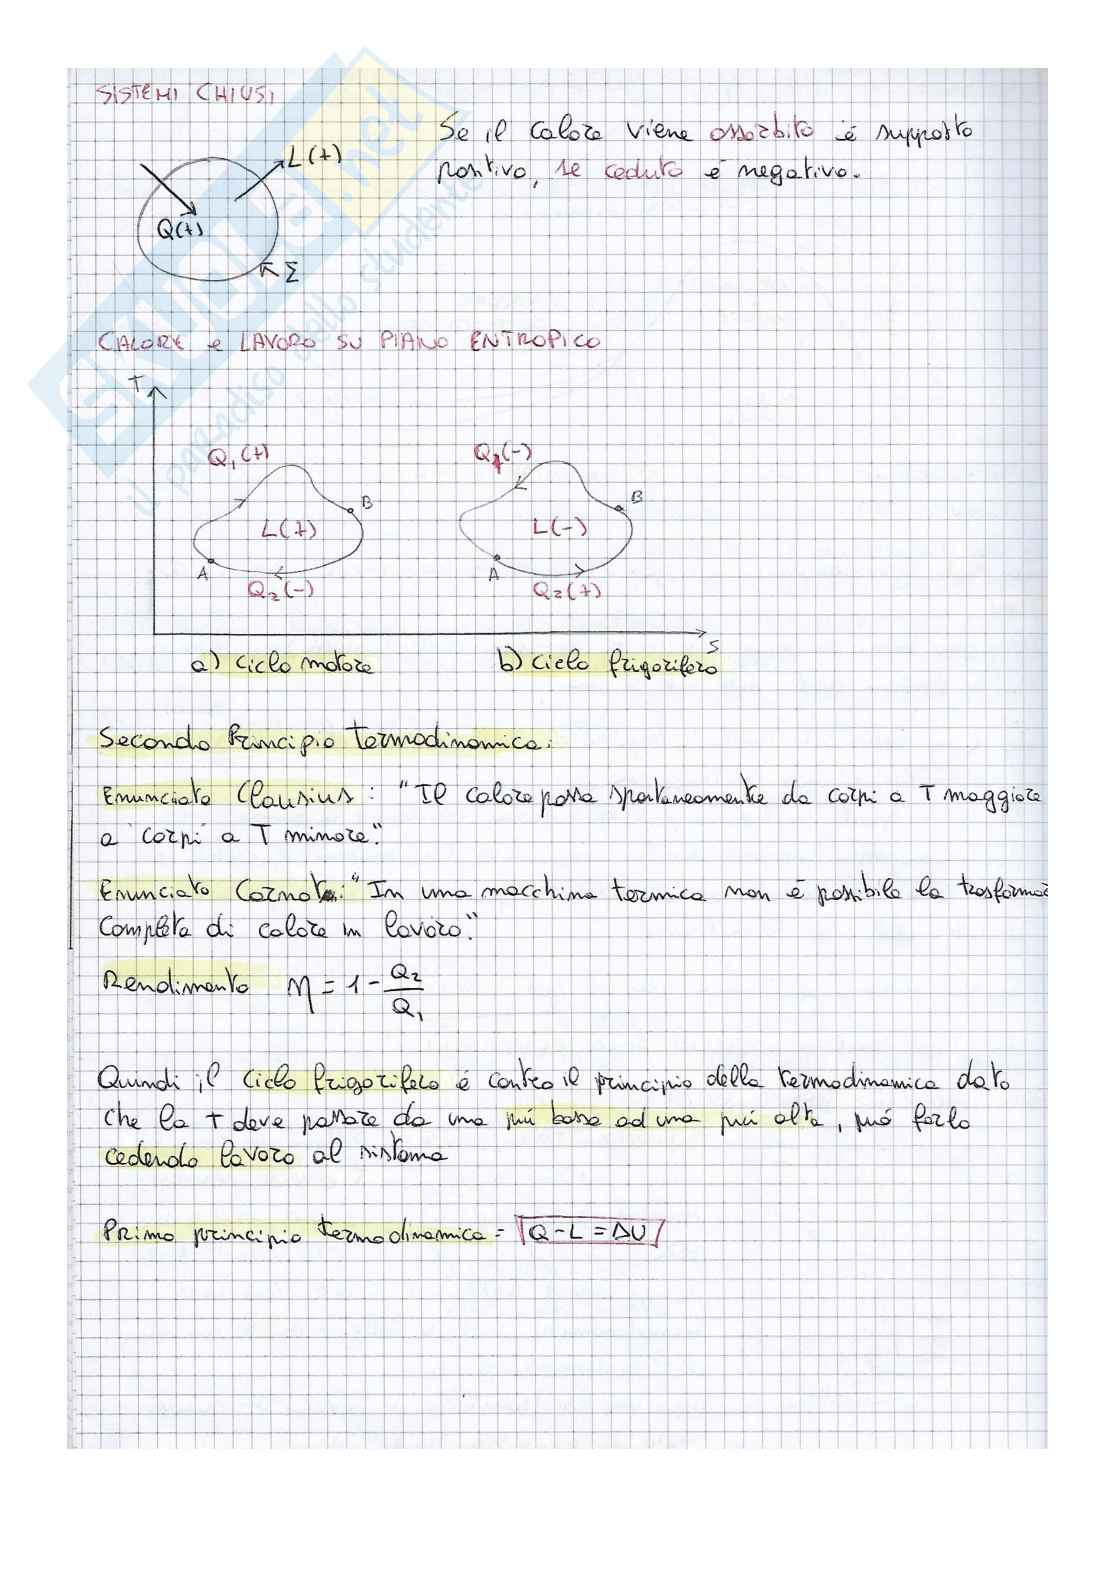 SISTEMI CHIUSI
Se il calore viene assorbito é supposto
positivo, se ceduto é negativo.
L(+)
Q(+)
Σ
CALORE e LAVORO SU PIANO ENTROPICO
T
Q₁(+)
Q₁(-)
B
B
L(+)
L(-)
A
A
Q₂(-)
Q₂(+)
S
a) Ciclo motore
b) Ciclo frigorifero
Secondo Principio Termodinamica:
Enunciato Clausius: "Il calore passa spontaneamente da corpi a T maggiore
a corpi a T minore".
Enunciato Carnot: "In una macchina termica non é possibile la trasformaz
Completa di calore in lavoro".
Rendimento η = 1 - Q₂/Q₁
Quindi il ciclo frigorifero é contro il principio della termodinamica dato
che la T deve passare da una piú bassa ad una piú alta, puó farlo
cedendo lavoro al sistema
Primo principio termodinamica = Q - L = ΔU
SKUOLA.net
il paradiso dello studente